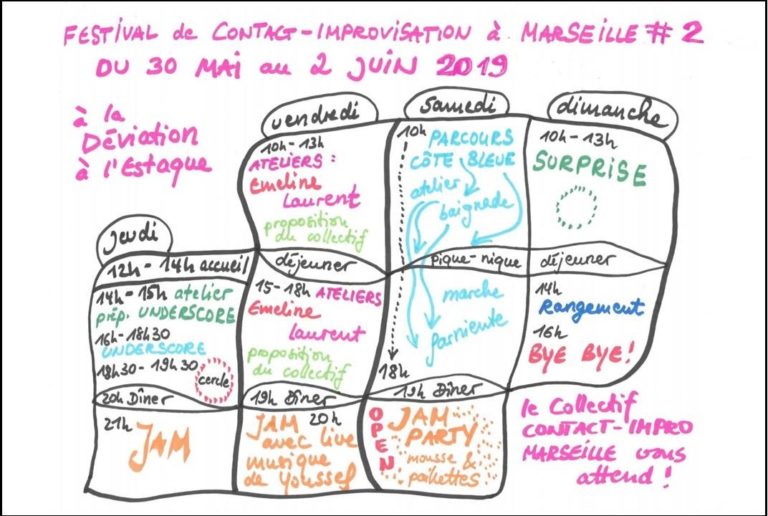 FESTIVAL de CONTACT-IMPROVISATION à MARSEILLE #2
DU 30 MAI au 2 JUIN 2019
à la
Déviation
à l'Estaque
jeudi
12h - 14h accueil
14h - 15h atelier
prép. UNDERSCORE
16h - 18h30
UNDERSCORE
18h30 - 19h30
cercle
20h Dîner
21h
JAM
vendredi
10h - 13h
ATELIERS :
Emeline
Laurent
proposition
du collectif
déjeuner
15 - 18h ATELIERS
Emeline
Laurent
proposition
du collectif
19h Dîner
JAM 20h
avec live
musique
de Youssef
samedi
10h
PARCOURS
CÔTE BLEUE
atelier
baignade
pique-nique
marche
farniente
18h
19h Dîner
OPEN
JAM
PARTY
mousse &
paillettes
dimanche
10h - 13h
SURPRISE
déjeuner
14h
Rangement
16h
BYE BYE !
le Collectif
CONTACT-IMPRO
MARSEILLE vous
attend !